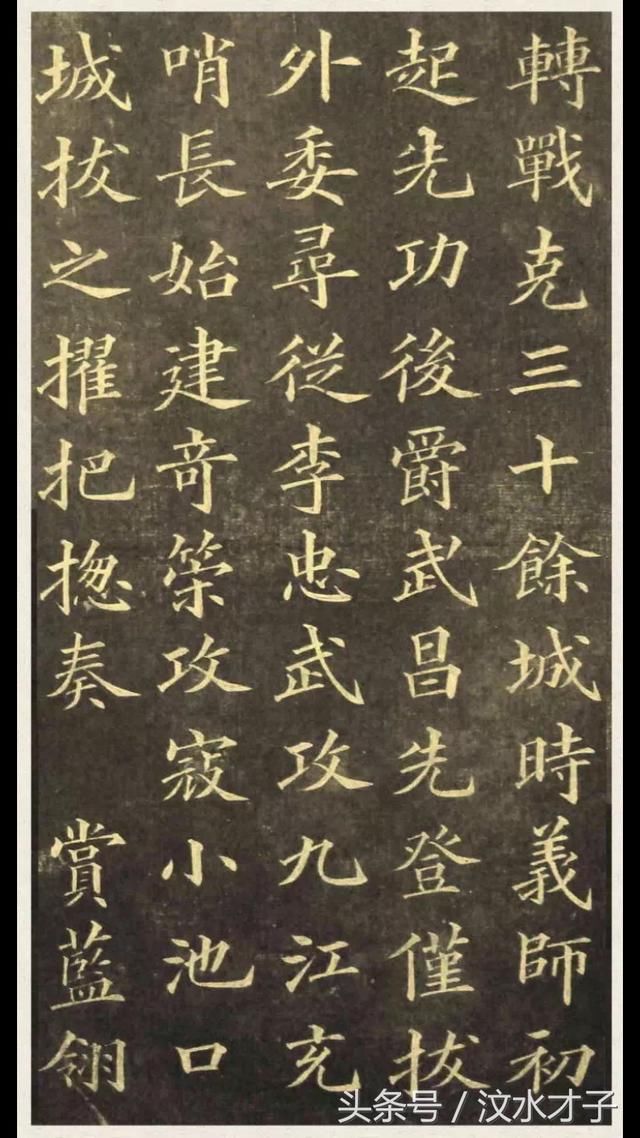 轉戰克三十餘城時義師初
起先功後爵武昌先登僅拔
外委尋從李忠武攻九江充
哨長始建奇策攻寇小池口
城拔之擢把揔奏 賞藍翎
头条号 / 汶水才子